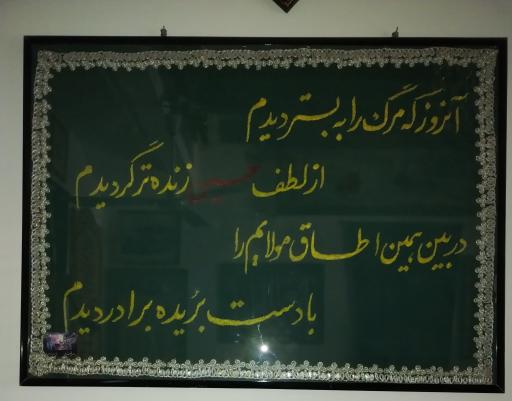 آنروز که مرگ را به بستر دیدم
از لطف حسین زنده تر گردیدم
در بین همین اطاق مولایم را
با دست بُریده برادر دیدم